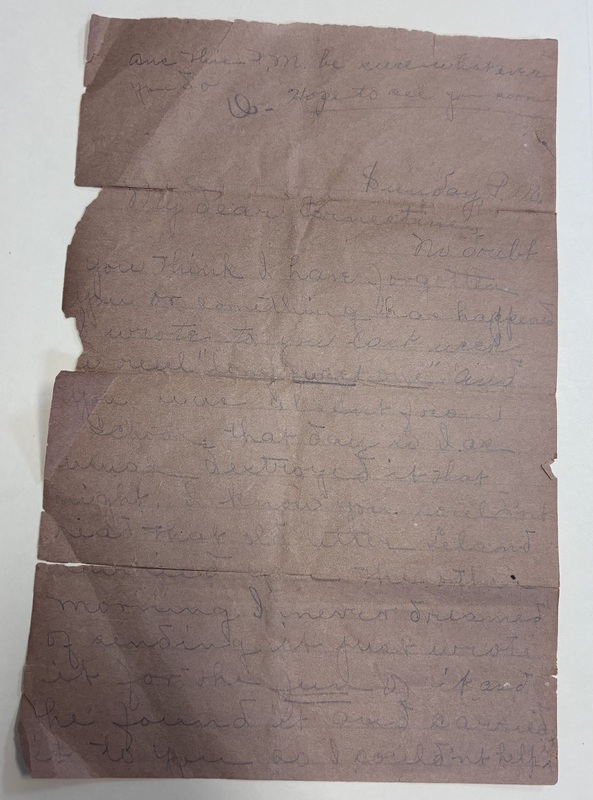 ans this P.M. be sure whatever
you do
Hope to see you soon
Sunday P.M.
My dear Ernestine,
No doubt
you think I have forgotten
you or something has happened
I wrote to you last week
a real "long sweet one" and
you was absent from
School that day so I as
usual destroyed it that
night. I knew you couldn't
read that
The other
morning I never dreamed
of sending it just wrote
it for the fun of it and
he found it and carried
it to you so I couldn't help it